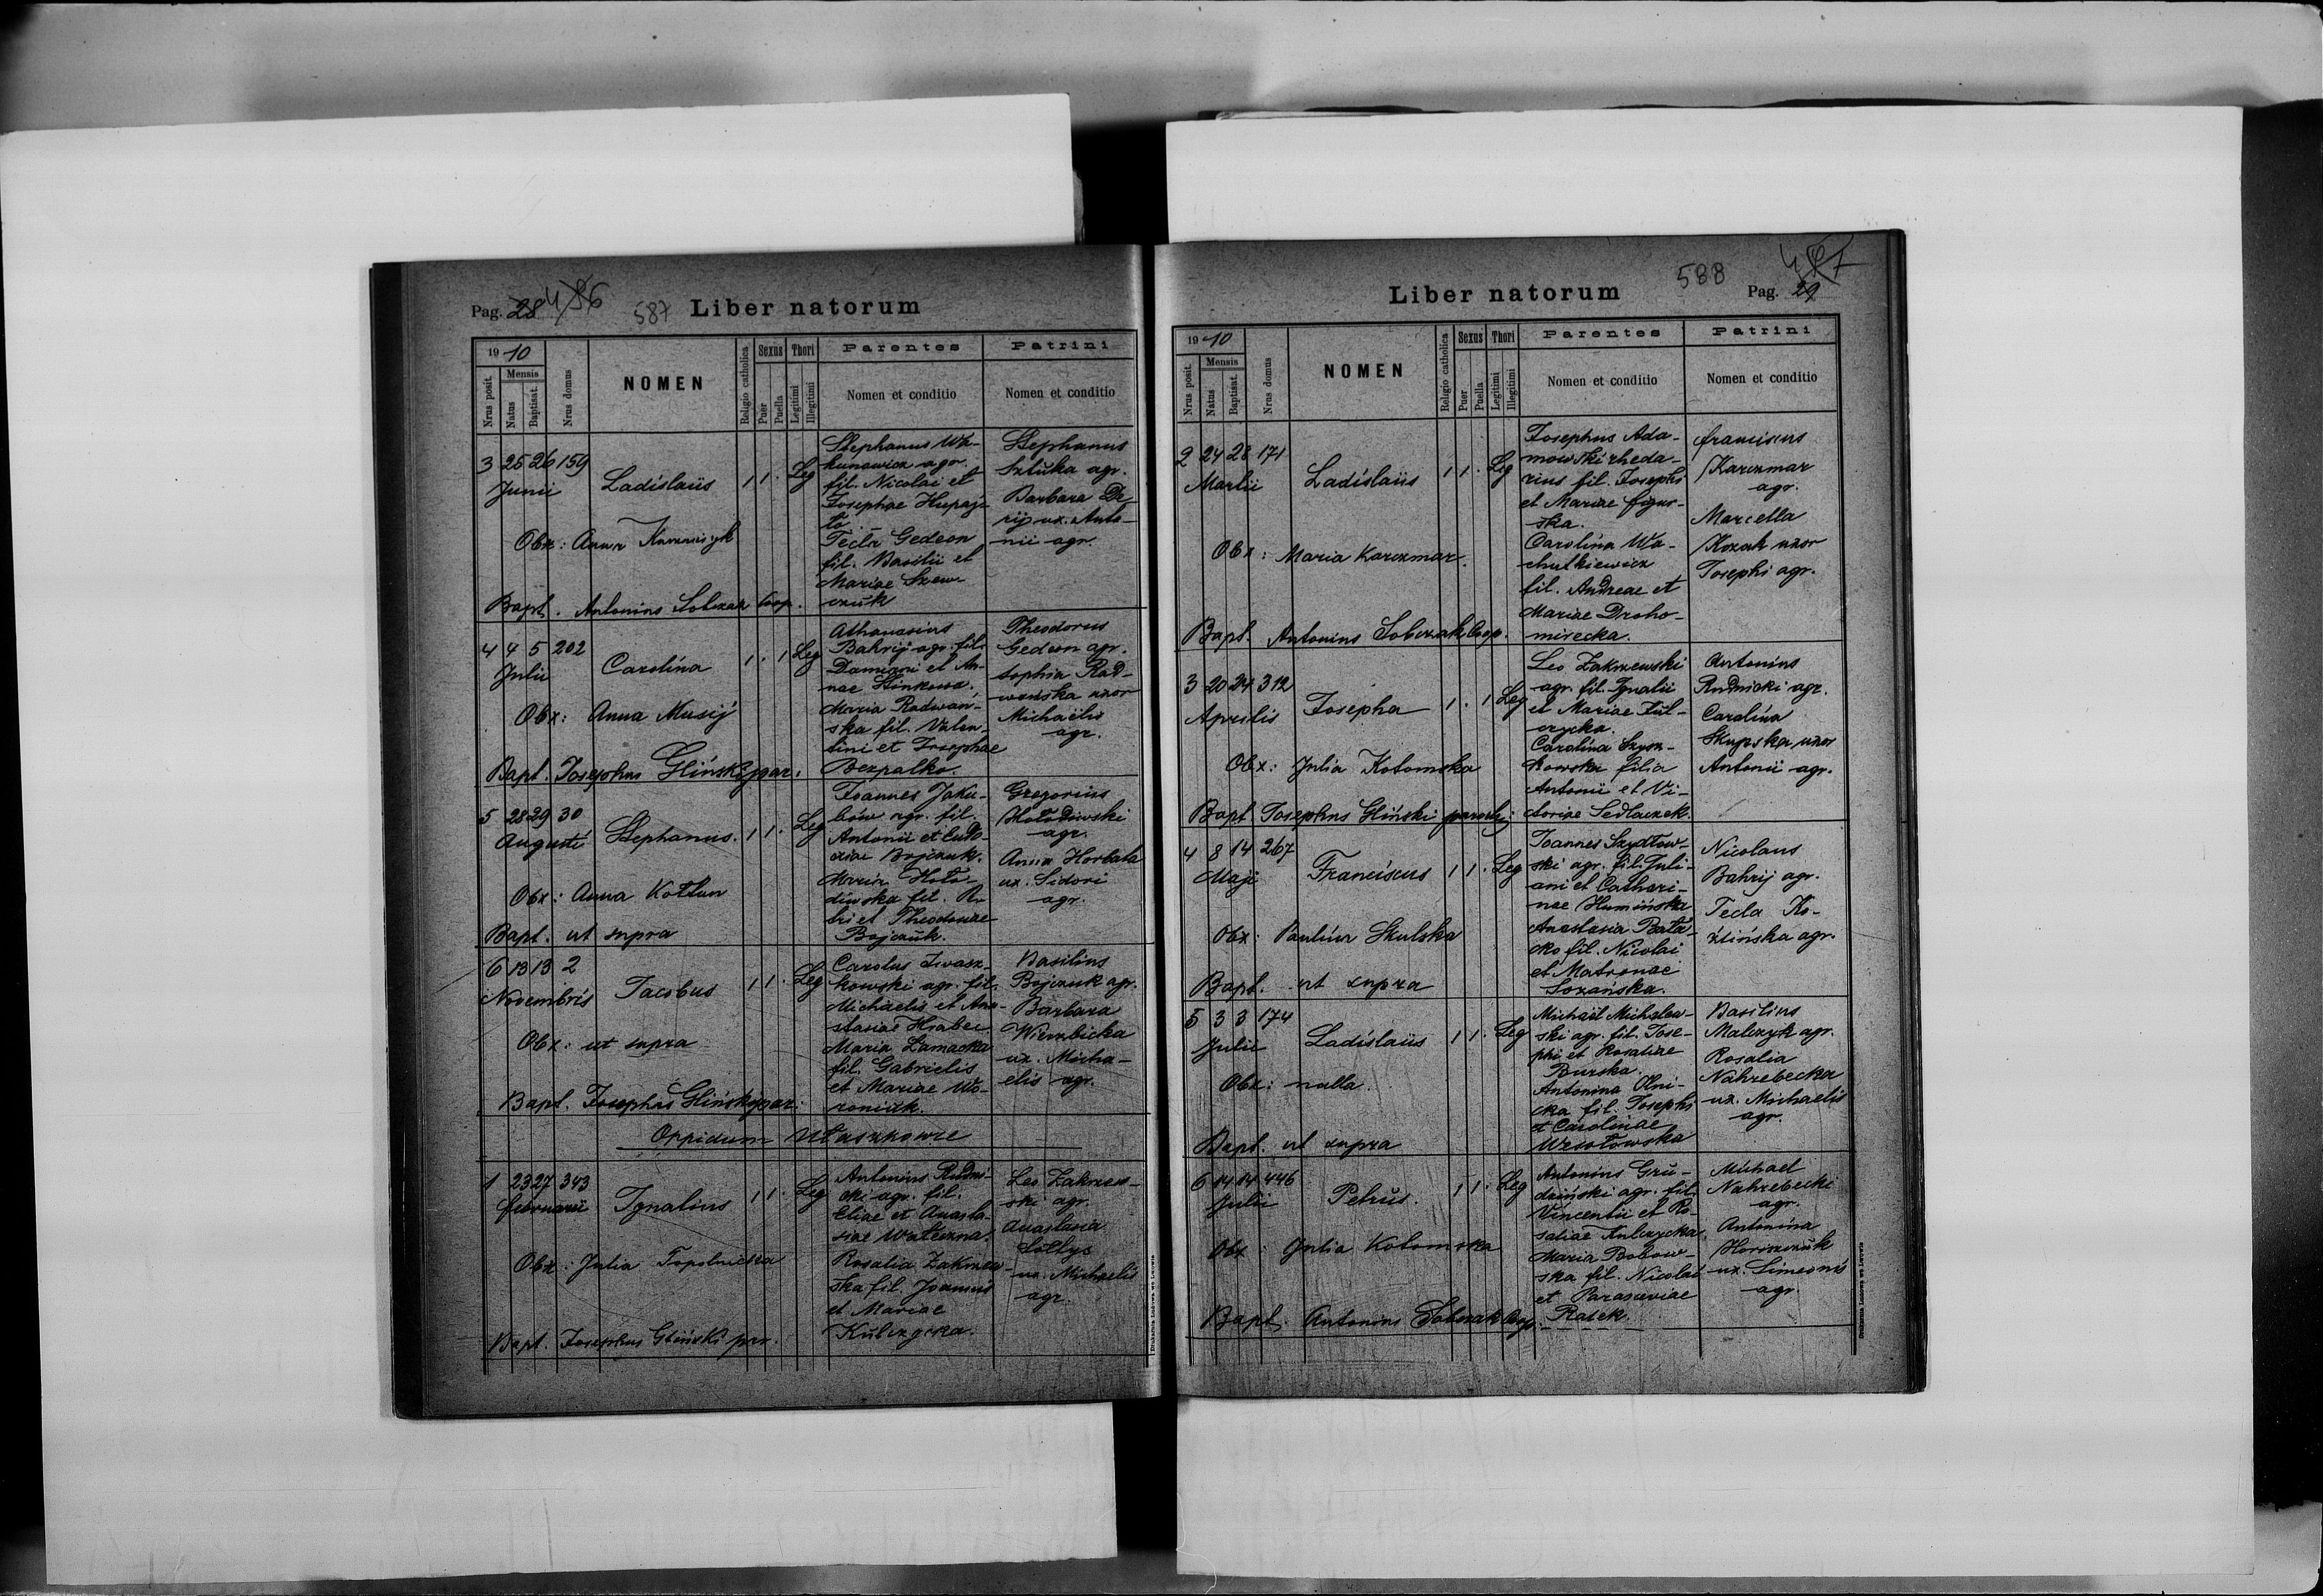 Pag. 28 486 587 Liber natorum
19 10
Nrus posit.
Mensis
Natus
Baptisat.
Nrus domus
NOMEN
Religio catholica
Sexus
Puer
Puella
Thori
Legitimi
Illegitimi
Parentes
Nomen et conditio
Patrini
Nomen et conditio
3 25 26 159
Junii
Ladislaus
1 1 . Leg
Obx: Anna
Bapt. Antonius Sobczak Coop.
Stephanus Wa-
kunawicz agr.
fil. Nicolai et
Josephae Hupaj-
ło.
Tecla Gedeon
fil. Basilii et
Mariae Szew-
czuk
Stephanus
Sztuka agr.
Barbara De-
rij ux. Anto-
nii agr.
4 4 5 202
Julii
Carolina
1 . 1 Leg
Obx: Anna Musij
Bapt. Josephus Gliński par.
Athanasius
Bahrij agr. fil.
Damiani et An-
nae Hinkowa.
Maria Radwan-
ska fil. Valen-
tini et Josephae
Bezpalko.
Theodorus
Gedeon agr.
Sophia Rad-
wanska uxor
Michaëlis
agr.
5 28 29 30
Augusti
Stephanus.
1 1 . Leg
Obx: Anna Kottun
Bapt. ut supra
Joannes Jaku-
bów agr. fil.
Antonii et Eudo-
xiae Bojczuk.
Maria Hoło-
diwska fil. Pe-
tri et Theodoziae
Bojczuk.
Gregorius
Hołodiwski
agr.
Anna Horbata
ux. Sidori
agr.
6 13 13 2
Novembris
Jacobus
1 1 . Leg
Obx: ut supra
Bapt. Josephus Gliński par.
Carolus Iwasz-
kowski agr. fil.
Michaelis et Ana-
stasiae Hrabec
Maria Lamacka
fil. Gabrielis
et Mariae Wo-
roniuk.
Basilius
Bojczuk agr.
Barbara
Wierzbicka
ux. Micha-
elis agr.
Oppidum Ułaszkowce
1 23 27 343
Februarii
Ignatius
1 1 . Leg
Obx: Julia Topolnicka
Bapt. Josephus Gliński par.
Antonius Rudni-
cki agr. fil.
Eliae et Anasta-
siae
Rosalia Zakrzew-
ska fil. Joannis
et Mariae
Kulczycka.
Leo Zakrzew-
ski agr.
Anastasia
Sołtys
ux. Michaelis
agr.
Liber natorum 588 Pag. 29 487
19 10
Nrus posit.
Mensis
Natus
Baptisat.
Nrus domus
NOMEN
Religio catholica
Sexus
Puer
Puella
Thori
Legitimi
Illegitimi
Parentes
Nomen et conditio
Patrini
Nomen et conditio
2 24 28 171
Martii
Ladislaus
1 1 . Leg
Obx: Maria Karczmar.
Bapt. Antonius Sobczak Coop.
Josephus Ada-
mowski rheda-
rius fil. Josephi
et Mariae Figur-
ska.
Carolina Wa-
chutkiewicz
fil. Andreae et
Mariae Droho-
mirecka.
Franciscus
Karczmar
agr.
Marcella
Kozak uxor
Josephi agr.
3 20 24 312
Aprilis
Josepha
1 . 1 Leg
Obx: Julia Kotomska
Bapt. Josephus Gliński paroch.
Leo Zakrzewski
agr. fil. Ignatii
et Mariae Kul-
czycka.
Carolina Szysz-
kowska filia
Antonii et Vi-
ctoriae Sedlaczek.
Antonius
Rudnicki agr.
Carolina
Skupska uxor
Antonii agr.
4 8 14 267
Maji
Franciscus
1 1 . Leg
Obx: Paulina Skulska
Bapt. ut supra
Joannes Szydłow-
ski agr. fil. Juli-
ani et Cathari-
nae Humińska
Anastasia Bata-
cko fil. Nicolai
et Matronae
Lozańska.
Nicolaus
Bahrij agr.
Tecla Ko-
źlińska agr.
5 3 3 174
Julii
Ladislaus
1 1 . Leg
Obx: nulla.
Bapt. ut supra
Michaël Michalew-
ski agr. fil. Jose-
phi et Rosaliae
Burska.
Antonina Olni-
cka fil. Josephi
et Carolinae
Wesołowska
Basilius
Malczyk agr.
Rosalia
Nahrebecka
ux. Michaelis
agr.
6 14 14 446
Julii
Petrus.
1 1 . Leg
Obx: Julia Kotomska
Bapt. Antonius Sobczak Coop.
Antonius Gru-
dziński agr. fil.
Vincentii et Ro-
saliae Kulczycka.
Maria Bobow-
ska fil. Nicolai
et Parasceviae
Ratek.
Michael
Nahrebecki
agr.
Antonina
Horiszczuk
ux. Simeonis
agr.